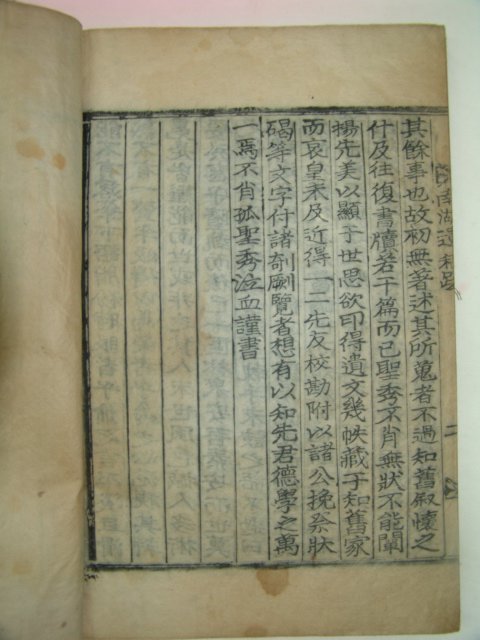 其餘事也故初無著述其所蒐者不過知舊叙懷之
什及往復書牘若干篇而已聖秀不肖無狀不能闡
揚先美以顯于世思欲印得遺文幾帙藏于知舊家
而哀皇未及近得一二先友校勘附以諸公挽祭狀
碣等文字付諸剞劂覽者想有以知先君德學之萬
一焉不肖孤聖秀泣血謹書
湖遺
二